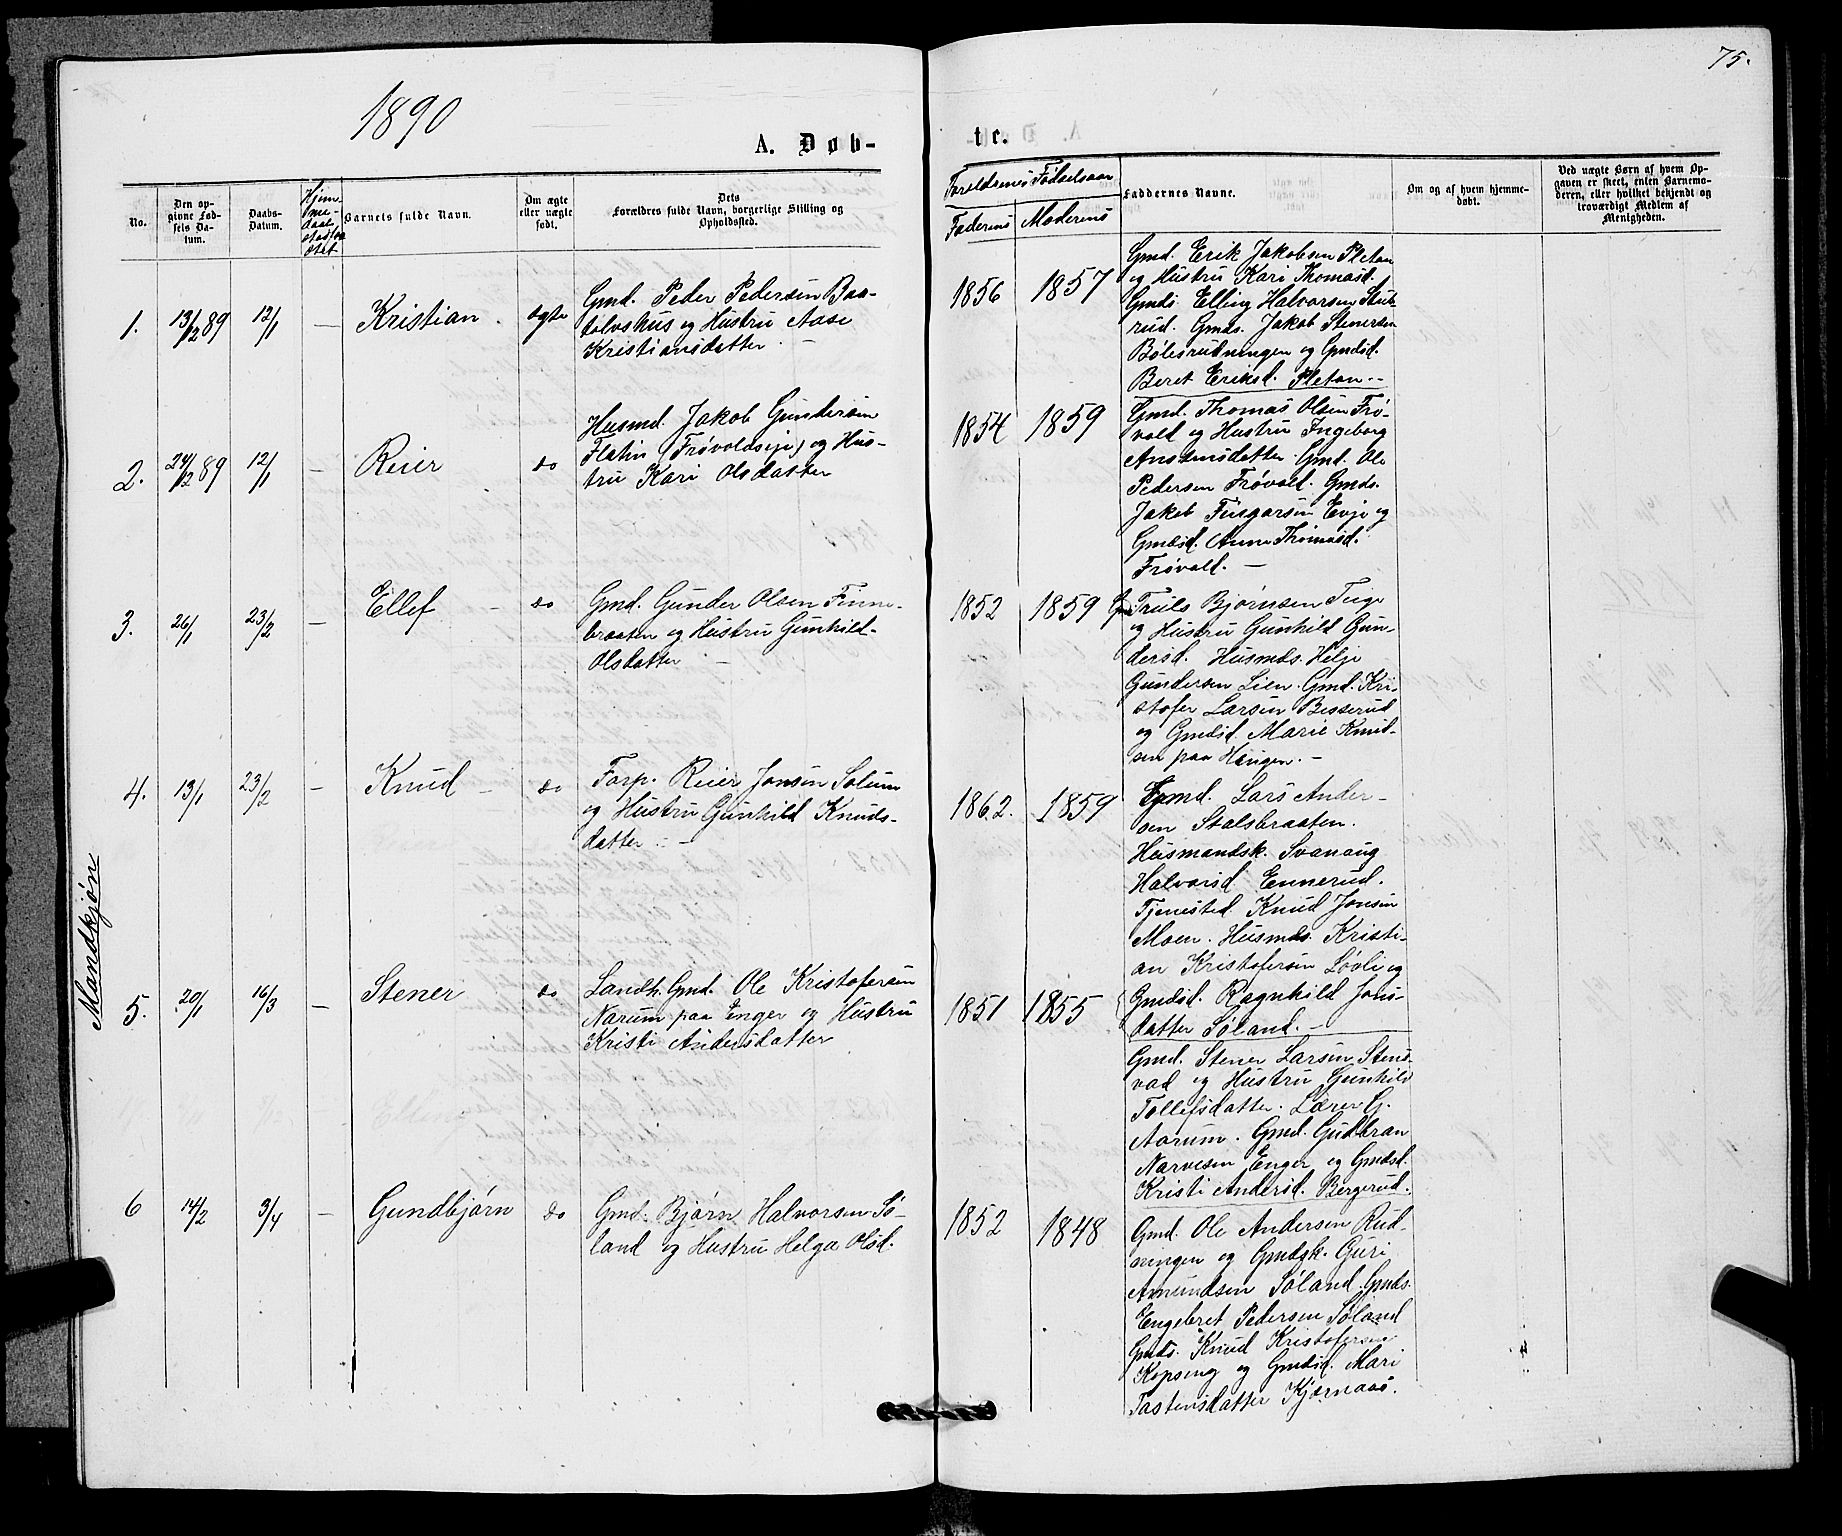 75.
1890
A. Døb-
te.
No.
Den op-
givne Fød-
sels Da-
tum.
Daabs-
Datum.
Hjem-
me-
daab
stadfæ
stet.
Barnets fulde Navn.
Om ægte
eller uægte
født.
Dets
Forældres fulde Navn, borgerlige Stilling og
Opholdssted.
Foreldrenes Fødselsaar
Faderens Moderens
Faddernes Navne.
Om og af hvem hjemme-
døbt.
Ved uægte Børn af hvem Op-
gaven er skeet, enten Barnemo-
deren, eller hvilket bekjendt og
troværdigt Medlem af
Menigheden.
Mandkjøn
1. 13/12 89 12/1 — Kristian. ægte
Gmd. Peder Pedersen Baa-
tolvshus og Hustru Aase
Kristiansdatter. —
1856 1857
Gmd. Erik Jakobsen Pletan
og Hustru Kari Thomasd.
Gmds. Elling Halvorsen Stub-
rud. Gmds. Jakob Stenersen
Bølesrudningen og Gmdsd.
Beret Eriksd. Pletan. -
2. 24/12 89 12/1 — Reier do
Husmd. Jakob Gundersen
Flatin (Frøvoldseje) og Hus-
tru Kari Olsdatter
1854 1859
Gmd. Thomas Olsen Frø-
vold og Hustru Ingeborg
Anstensdatter. Gmd. Ole
Pedersen Frøvold. Gmds.
Jakob Fingarsen Evje og
Gmdsd. Anne Thomasd.
Frøvold. —
3. 26/1 23/2 — Ellef — do
Gmd. Gunder Olsen Finne-
braaten og Hustru Gunhild
Olsdatter —
1852 1859
Gmd. Truls Bjørnsen Tuge
og Hustru Gunhild Gun-
dersd. Husmds. Helje
Gundersen Lien. Gmd. Kri-
stofer Larsen Besserud
og Gmdsd. Marie Knud-
sen paa Haugen. —
4. 13/1 23/2 — Knud — do
Forp. Reier Jonsen Solum
og Hustru Gunhild Knuds-
datter —
1862. 1859
Gmd. Lars Ander-
sen Stalsbraaten.
Husmandsk. Svanaug
Halvorsd. Ennerud.
Tjenested. Knud Jonsen
Moen. Husmds. Kristi-
an Kristofersen Løvli og
Gmdsd. Ragnhild Jons-
datter Søland. —
5. 20/1 16/3 — Stener do
Landh. Gmd. Ole Kristofersen
Narum paa Enger og Hustru
Kristi Andersdatter
1851 1855
Gmd. Stener Larsen Stens-
vad og Hustru Gunhild
Tollefsdatter. Lærer G.
Aarum. Gmd. Gudbran
Narvesen Enger og Gmdsd.
Kristi Andersd. Bergerud.
6 14/2 3/4 — Gundbjørn do
Gmd. Bjørn Halvorsen Sø-
land og Hustru Helga Olsd.
1852 1848
Gmd. Ole Andersen Rud-
ningen og Gmdsk. Guri
Amundsen Søland. Gmds.
Engebret Pedersen Søland
Gmds. Knud Kristofersen
Kopseng og Gmdsd. Mari
Tostensdatter Kjærnaas.